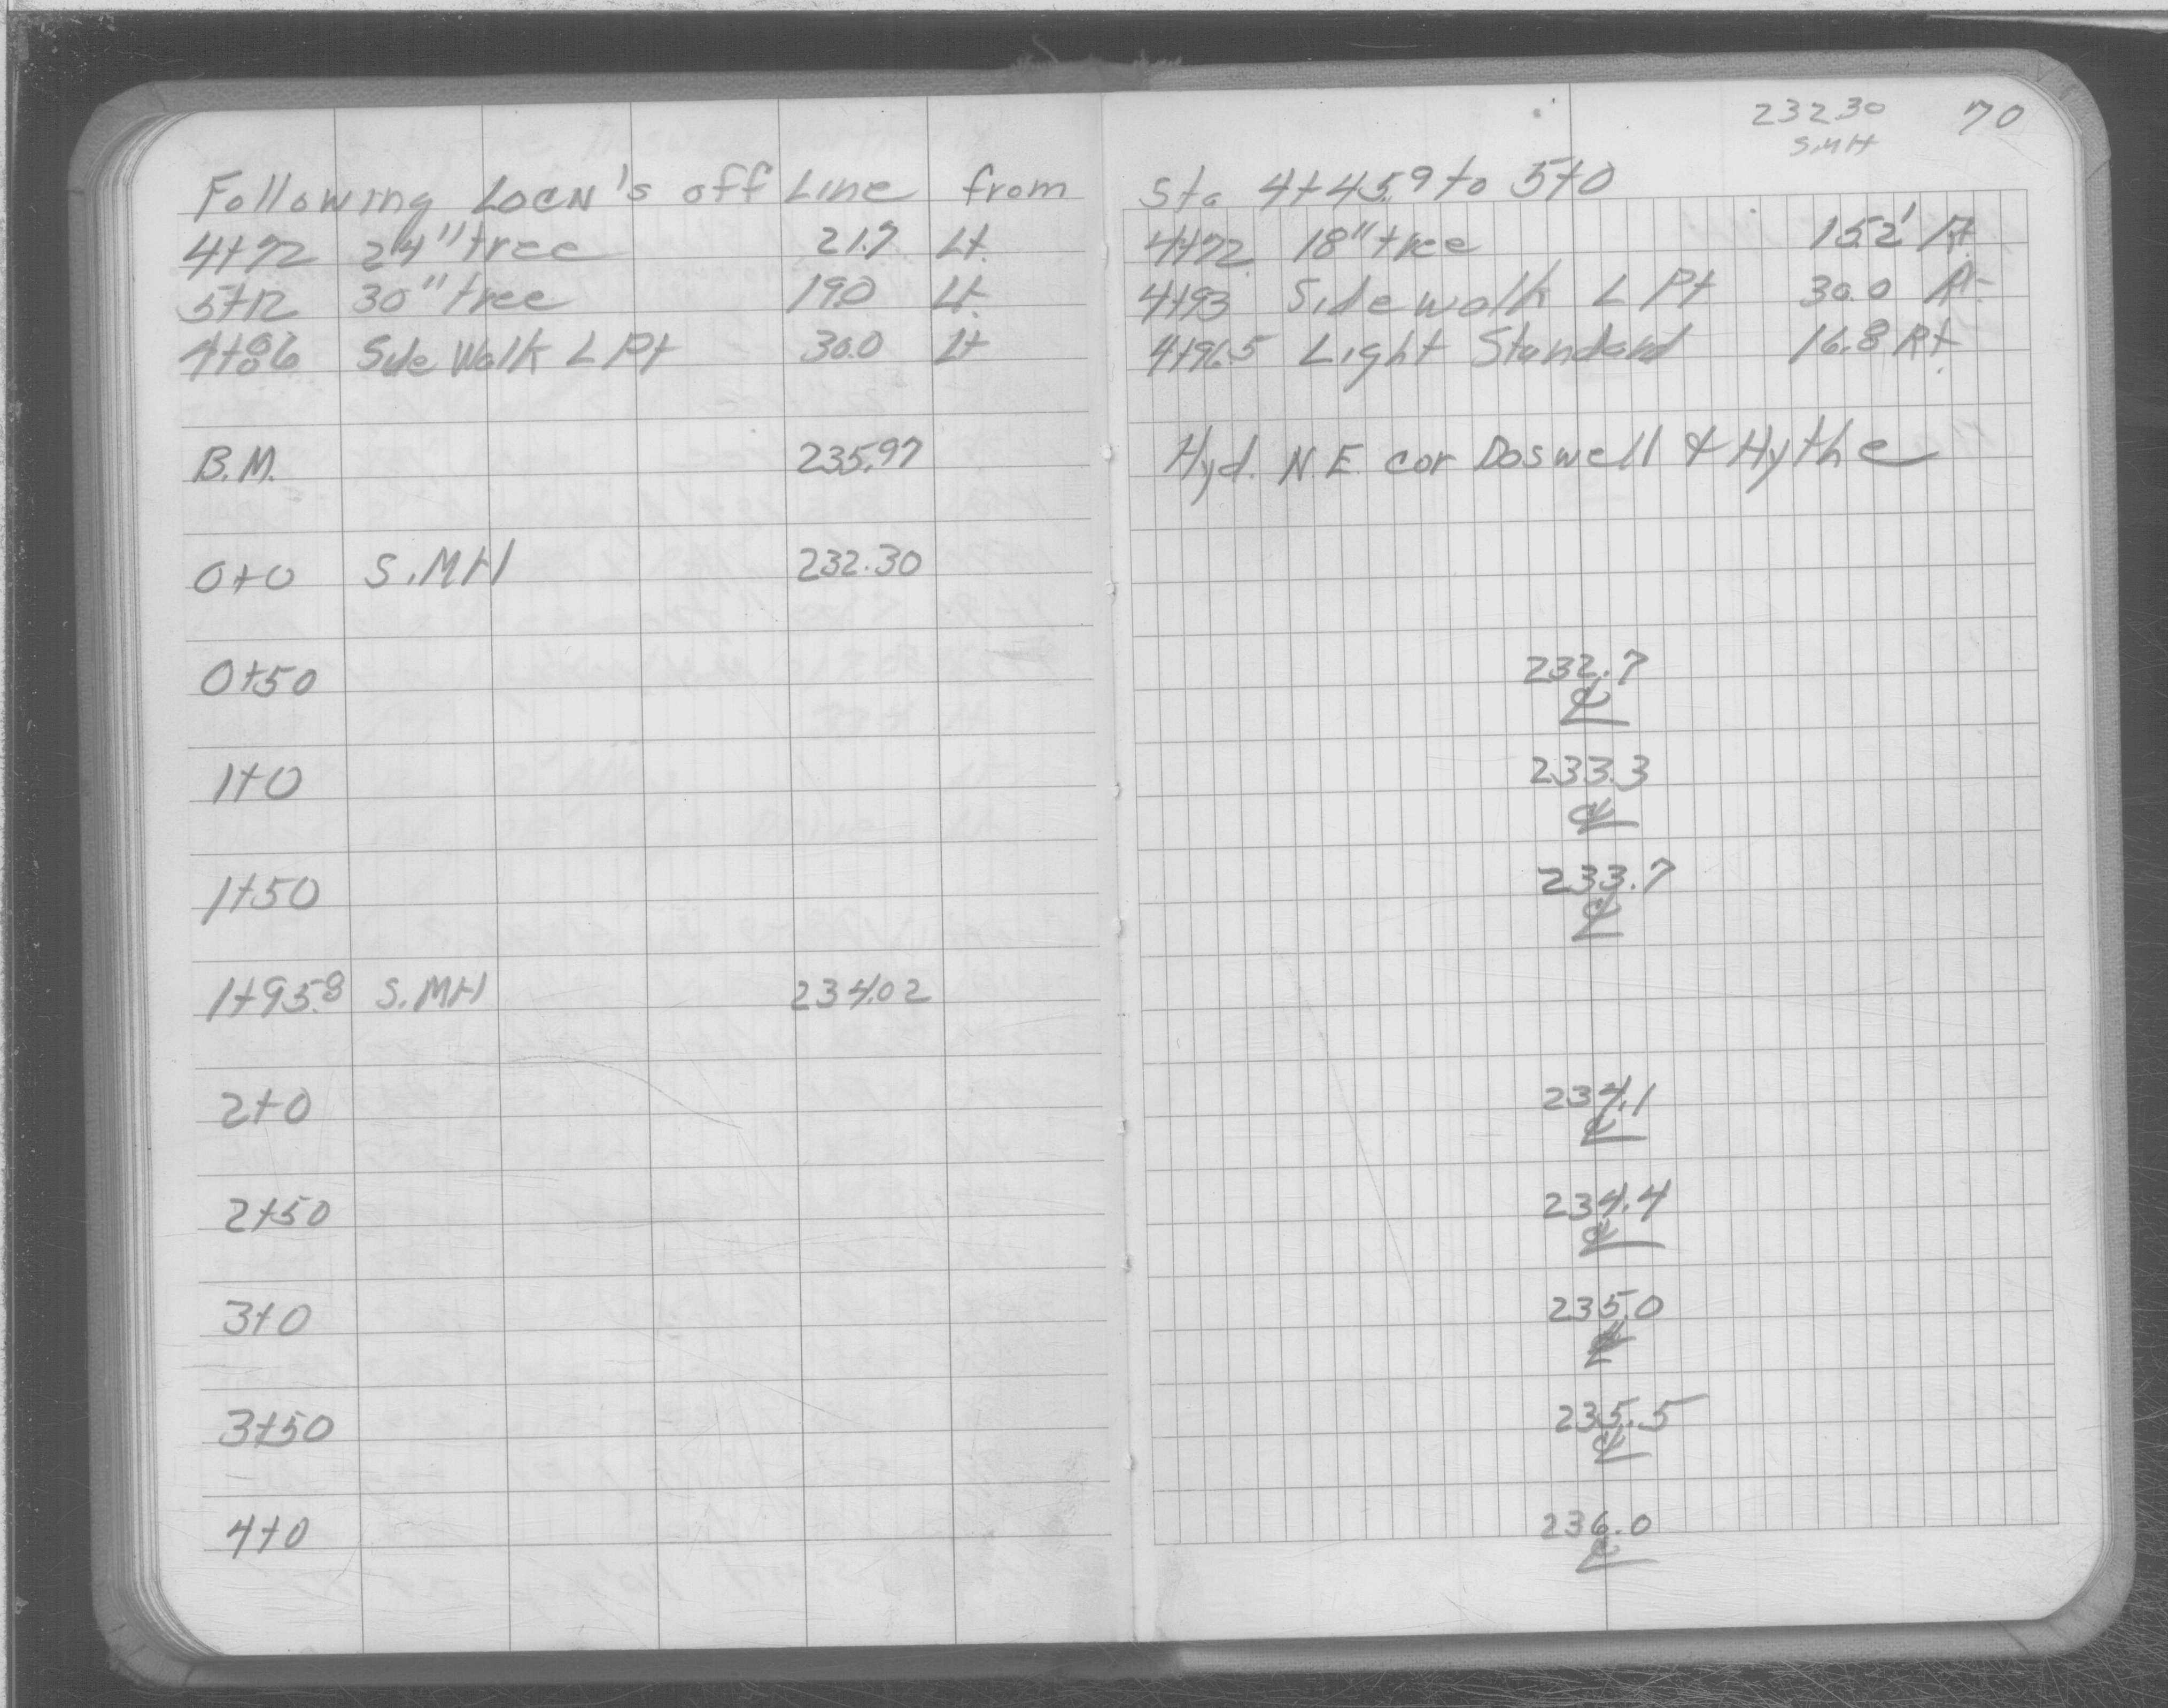 232.30 70
S.MH
Following Locn's off Line from Sta 4+45.9 to 5+0
4+72 24" tree 21.7 Lt. 4+72 18" tree 15.2' Rt
5+12 30" tree 19.0 Lt. 4+93 Sidewalk L Pt 30.0 Rt
4+86 Side Walk L Pt 30.0 Lt 4+96.5 Light Standard 16.8 Rt.
B.M. 235.97 Hyd. N.E. cor Doswell & Hythe
0+0 S.MH 232.30
0+50 232.7
℄
1+0 233.3
℄
1+50 233.7
℄
1+95.8 S.MH 234.02
2+0 234.1
℄
2+50 234.4
℄
3+0 235.0
℄
3+50 235.5
℄
4+0 236.0
℄